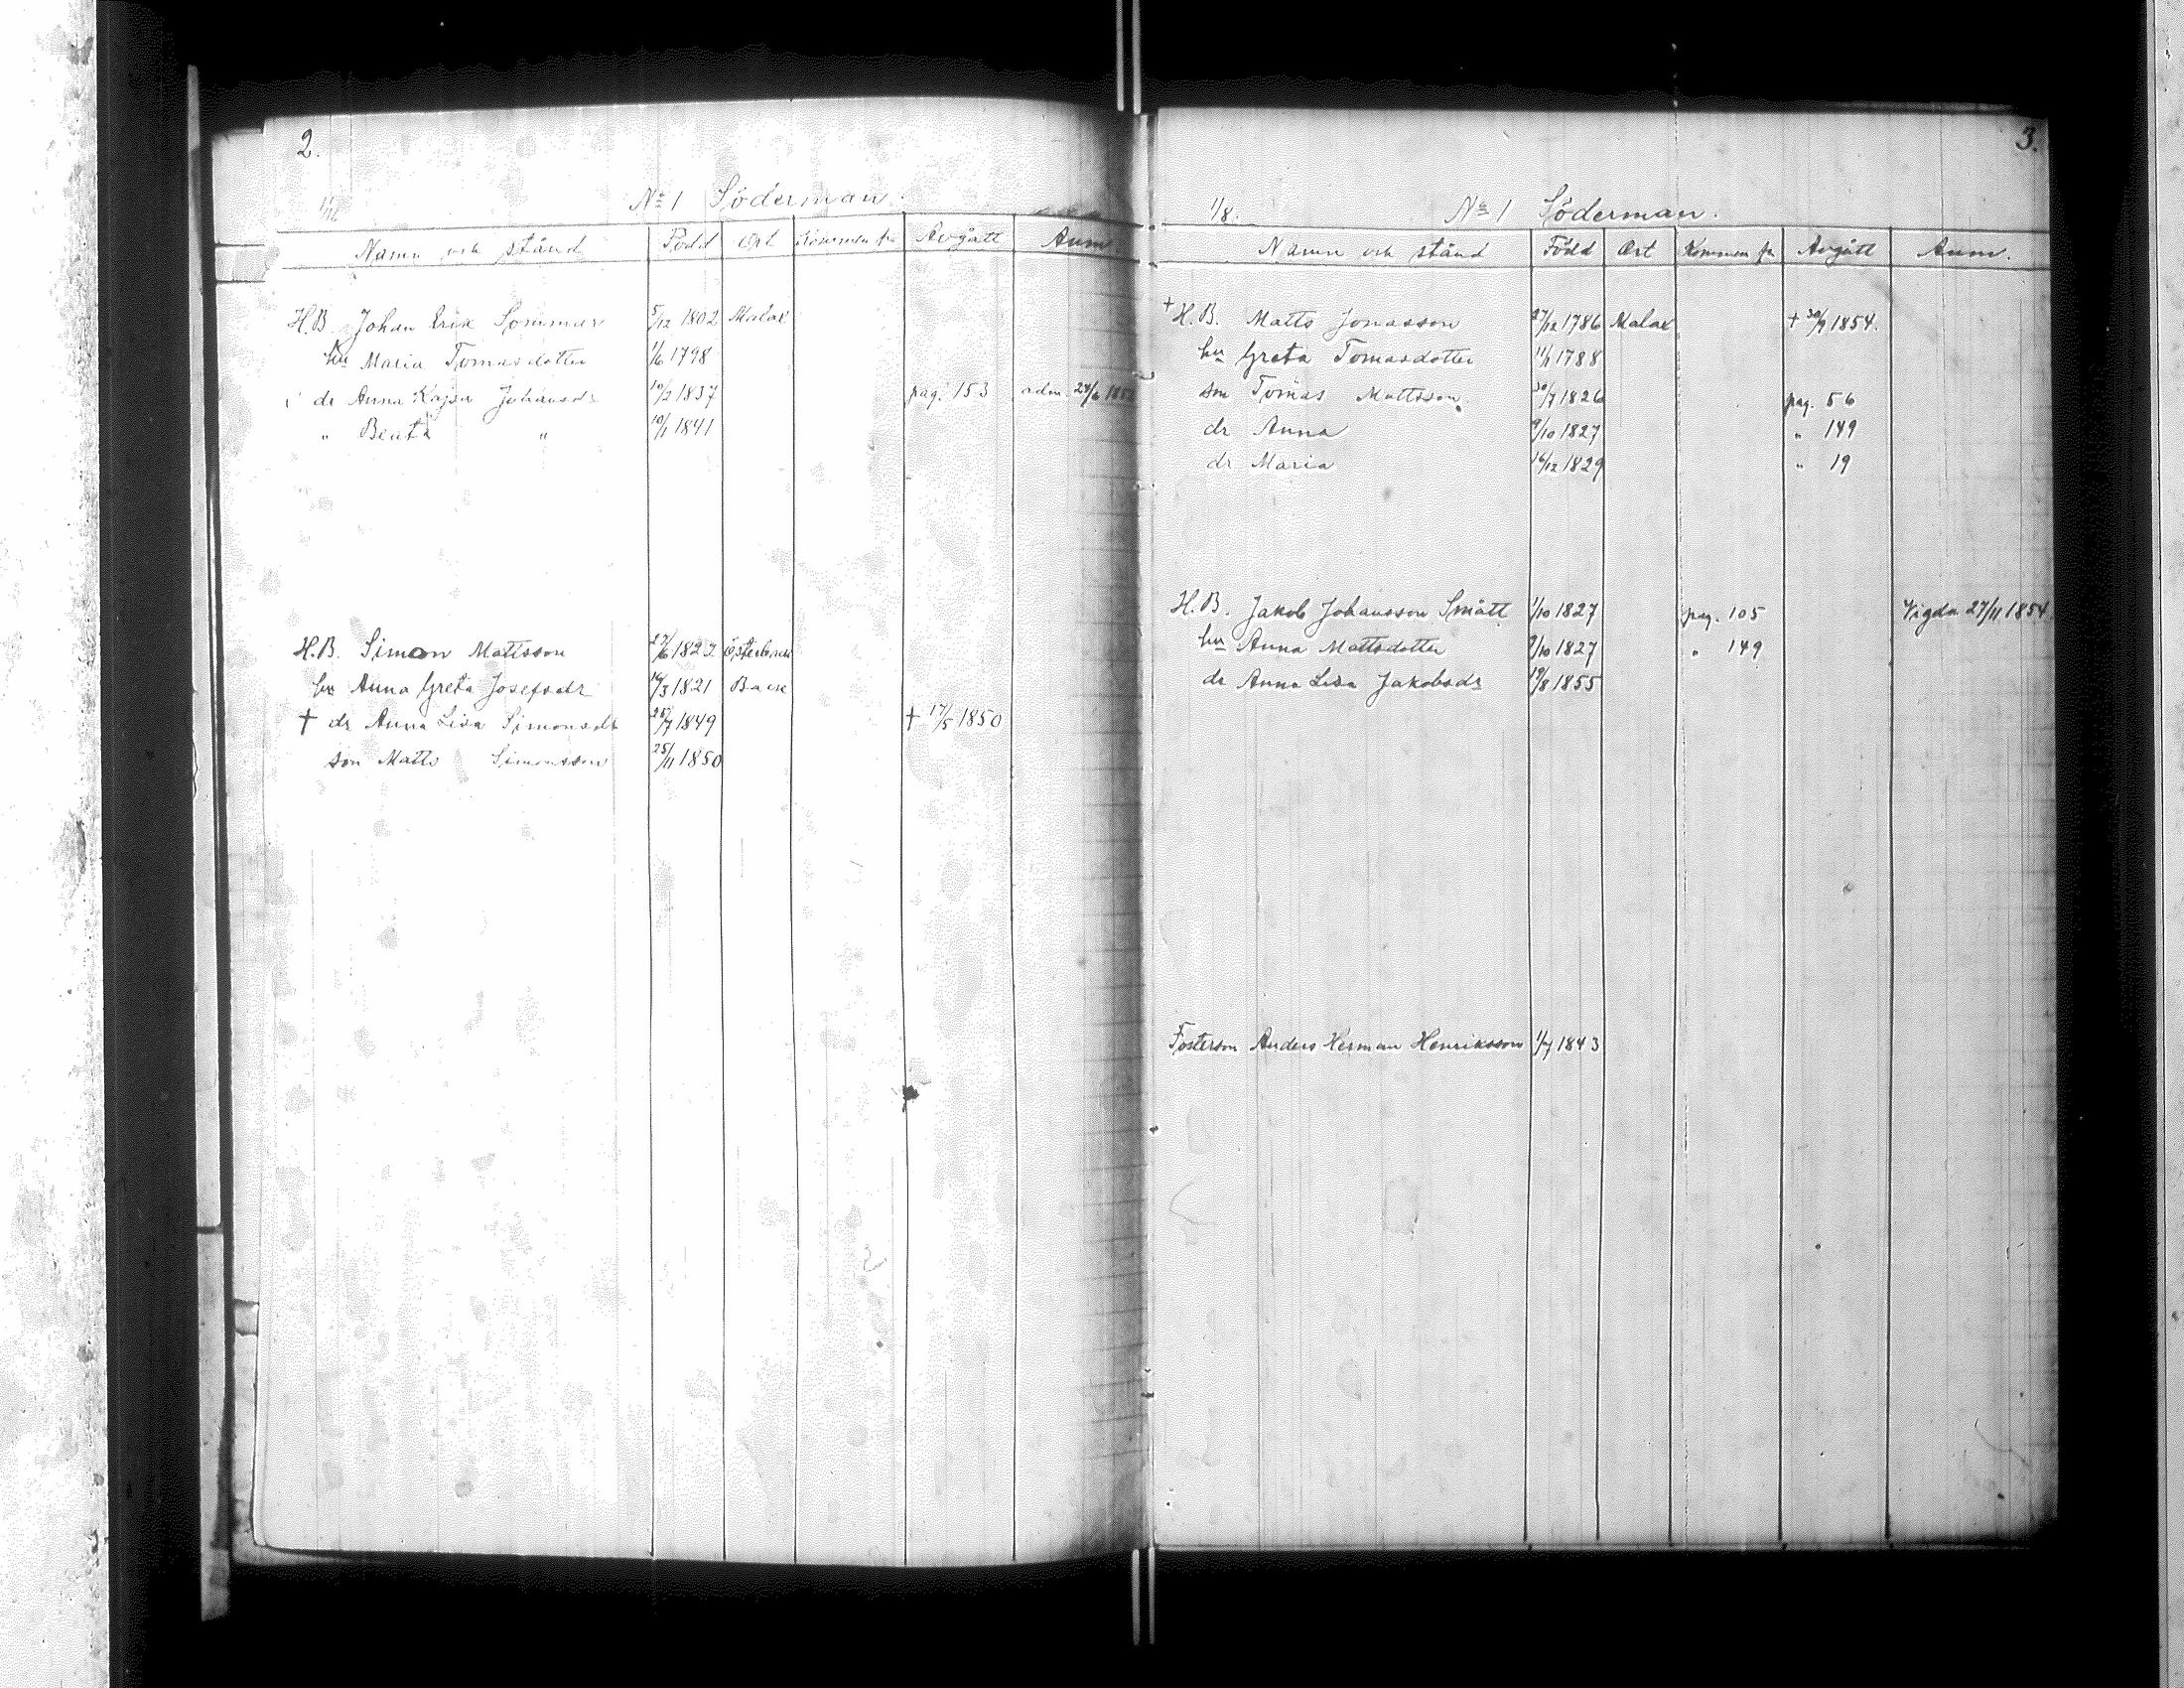 2.
1/16 No 1 Söderman.
Namn och stånd Född Ort Kommen fr Avgått Anm
H.B. Johan Erik Sommar 5/12 1802 Malax
hu Maria Tomasdotter 1/6 1798
dr Anna Kajsa Johansdr 10/2 1837 pag. 153 adm. 24/6 185
" Beata " 10/1 1841
H.B. Simon Mattsson 27/6 1822 Österback
hu Anna Greta Josefsdr 16/3 1821 Back
† dr Anna Lisa Simonsdr 25/7 1849 † 17/5 1850
son Matts Simonsson 25/11 1850
3.
1/8. No 1 Söderman.
Namn och stånd Född Ort Kommen fr Avgått Anm.
† H.B. Matts Jonasson 27/12 1786 Malax † 30/9 1854.
hu Greta Tomasdotter 11/1 1788
son Tomas Mattsson 30/7 1826 pag. 56
dr Anna 9/10 1827 " 149
dr Maria 16/12 1829 " 19
H.B. Jakob Johansson Smått 1/10 1827 pag. 105 Vigda 27/11 1854
hu Anna Mattsdotter 9/10 1827 " 149
dr Anna Lisa Jakobsdr 19/8 1855
Fosterson Anders Herman Henriksson 1/7 1843